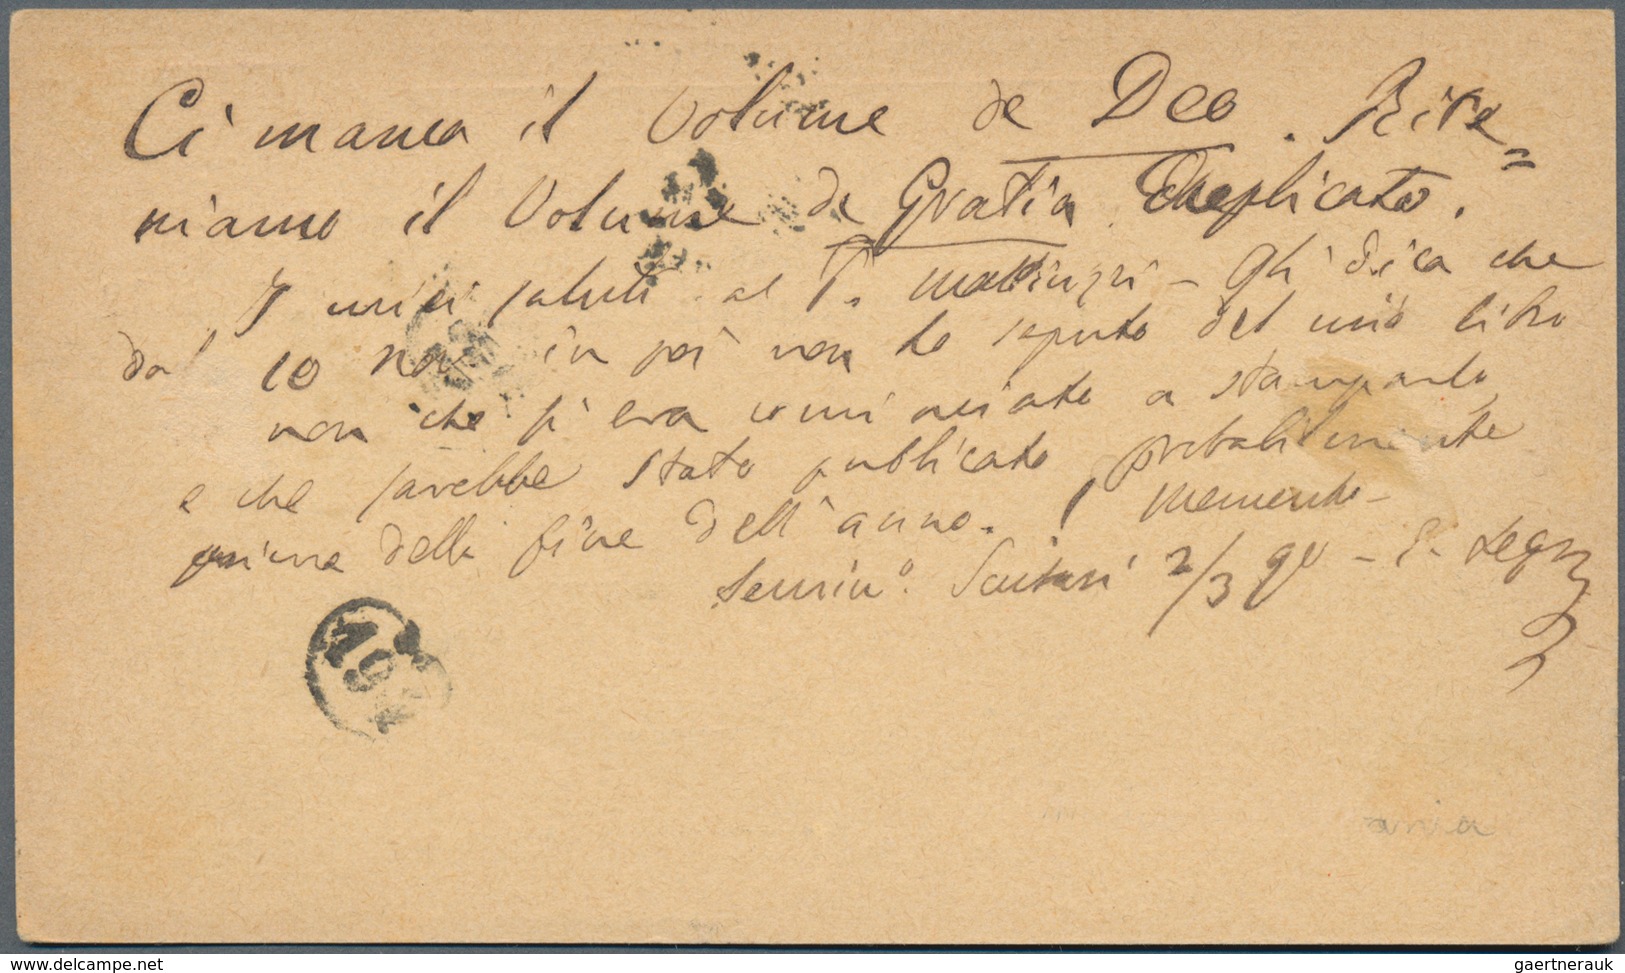 Ci manca il Volume de Deo. Rite=
niamo il Volume de Gratia duplicato.
I miei saluti al P. Mattiuzzi - Gli dica che
dal 10 Nov in poi non ho saputo del mio libro
non che si era cominciato a stamparlo
e che sarebbe stato pubblicato probabilmente
prima della fine dell'anno. Memento -
Semin°. Scutari 2/3 90 -
191
www.delcampe.net
gaertnerauk